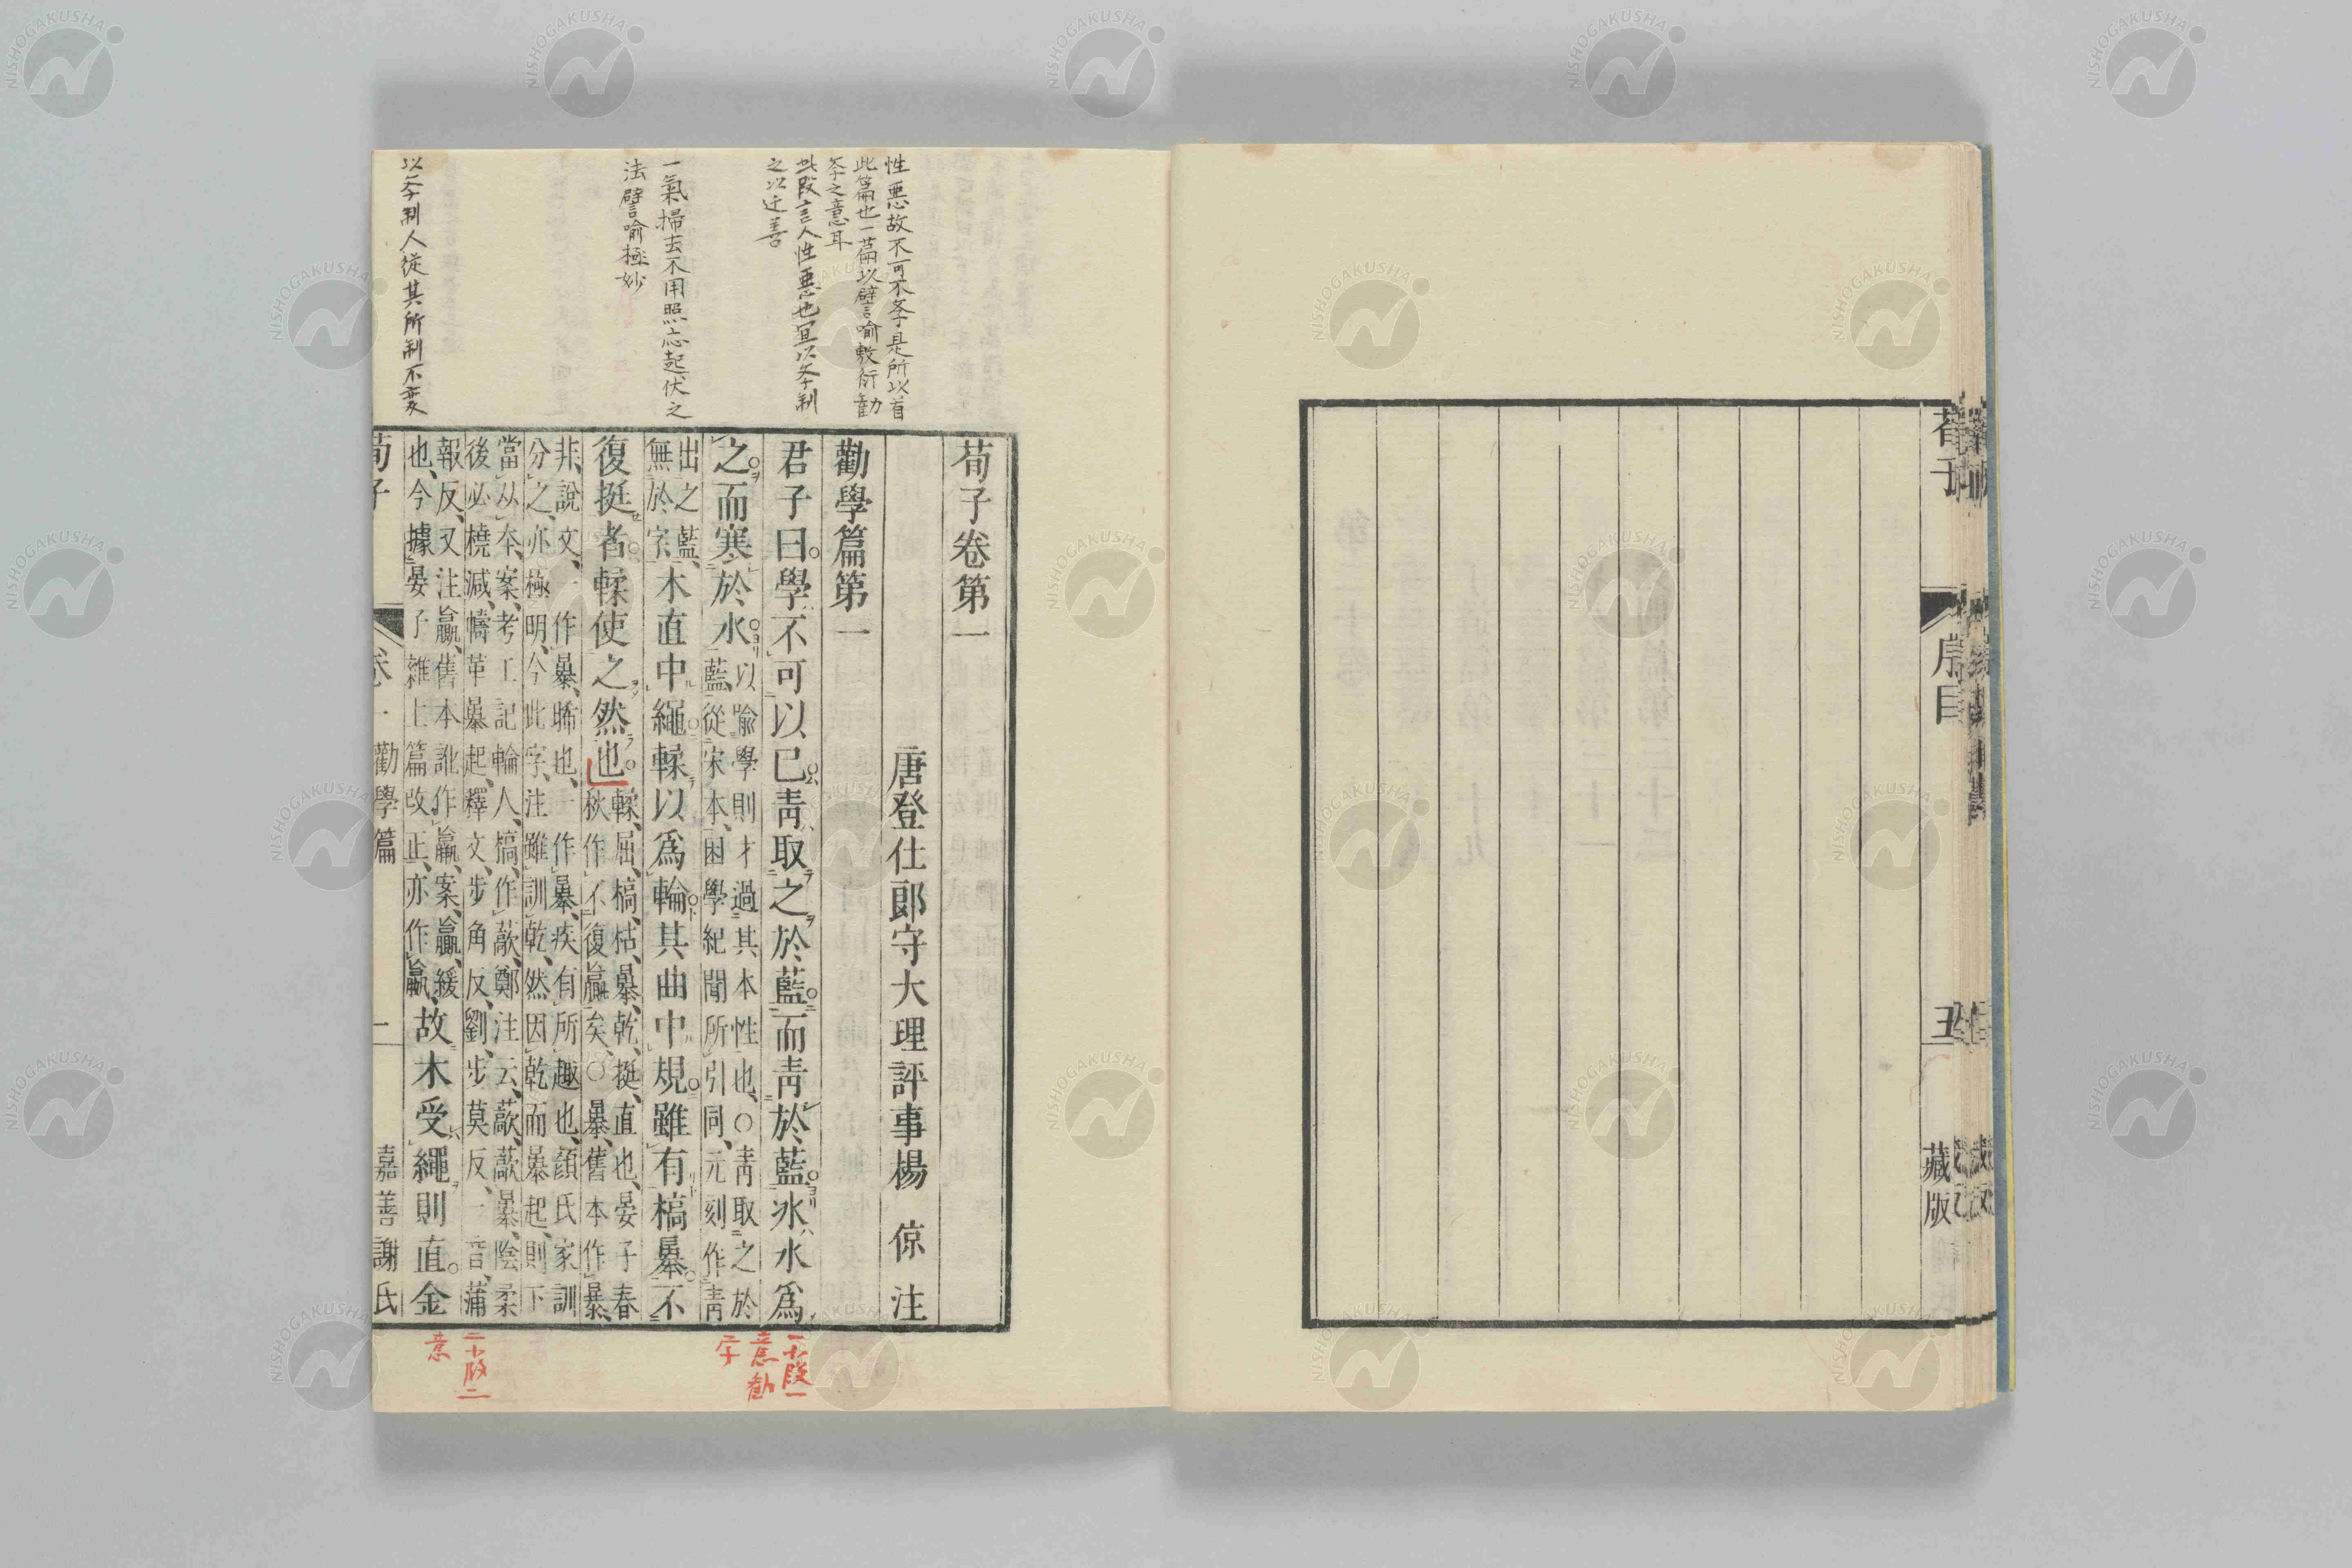 荀子
序目
五
藏版
性惡故不可不斈是所以首
此篇也一篇以譬喻敷衍勸
斈之意耳
此段言人性惡也宜以斈制
之以迁善
一氣掃去不用照應起伏之
法譬喻極妙
以斈制人從其所制不変
荀子卷第一
唐登仕郎守大理評事楊 倞 注
勸學篇第一
君子曰學不可以已靑取之於藍而靑於藍冰水爲
之而寒於水
以喩學則才過其本性也○靑取之於
藍從宋本困學紀聞所引同元刻作靑
出之藍
無於字
木直中繩輮以爲輪其曲中規雖有槁暴不
復挺者輮使之然也
輮屈槁枯暴乾挺直也晏子春
秋作不復贏矣○暴舊本作暴
非說文一作暴晞也一作暴疾有所趣也顏氏家訓
分之亦極明今此字注雖訓乾然因乾而暴起則下
當从本案考工記輪人槁作藃鄭注云藃藃暴陰柔
後必橈減幬革暴起釋文步角反劉步莫反一音蒲
報反又注贏舊本訛作羸案贏緩
也今據晏子雜上篇改正亦作嬴
故木受繩則直金
荀子
卷一 勸學篇
一
嘉善謝氏
一十段一
意勸
斈
二十段二
意
NISHOGAKUSHA